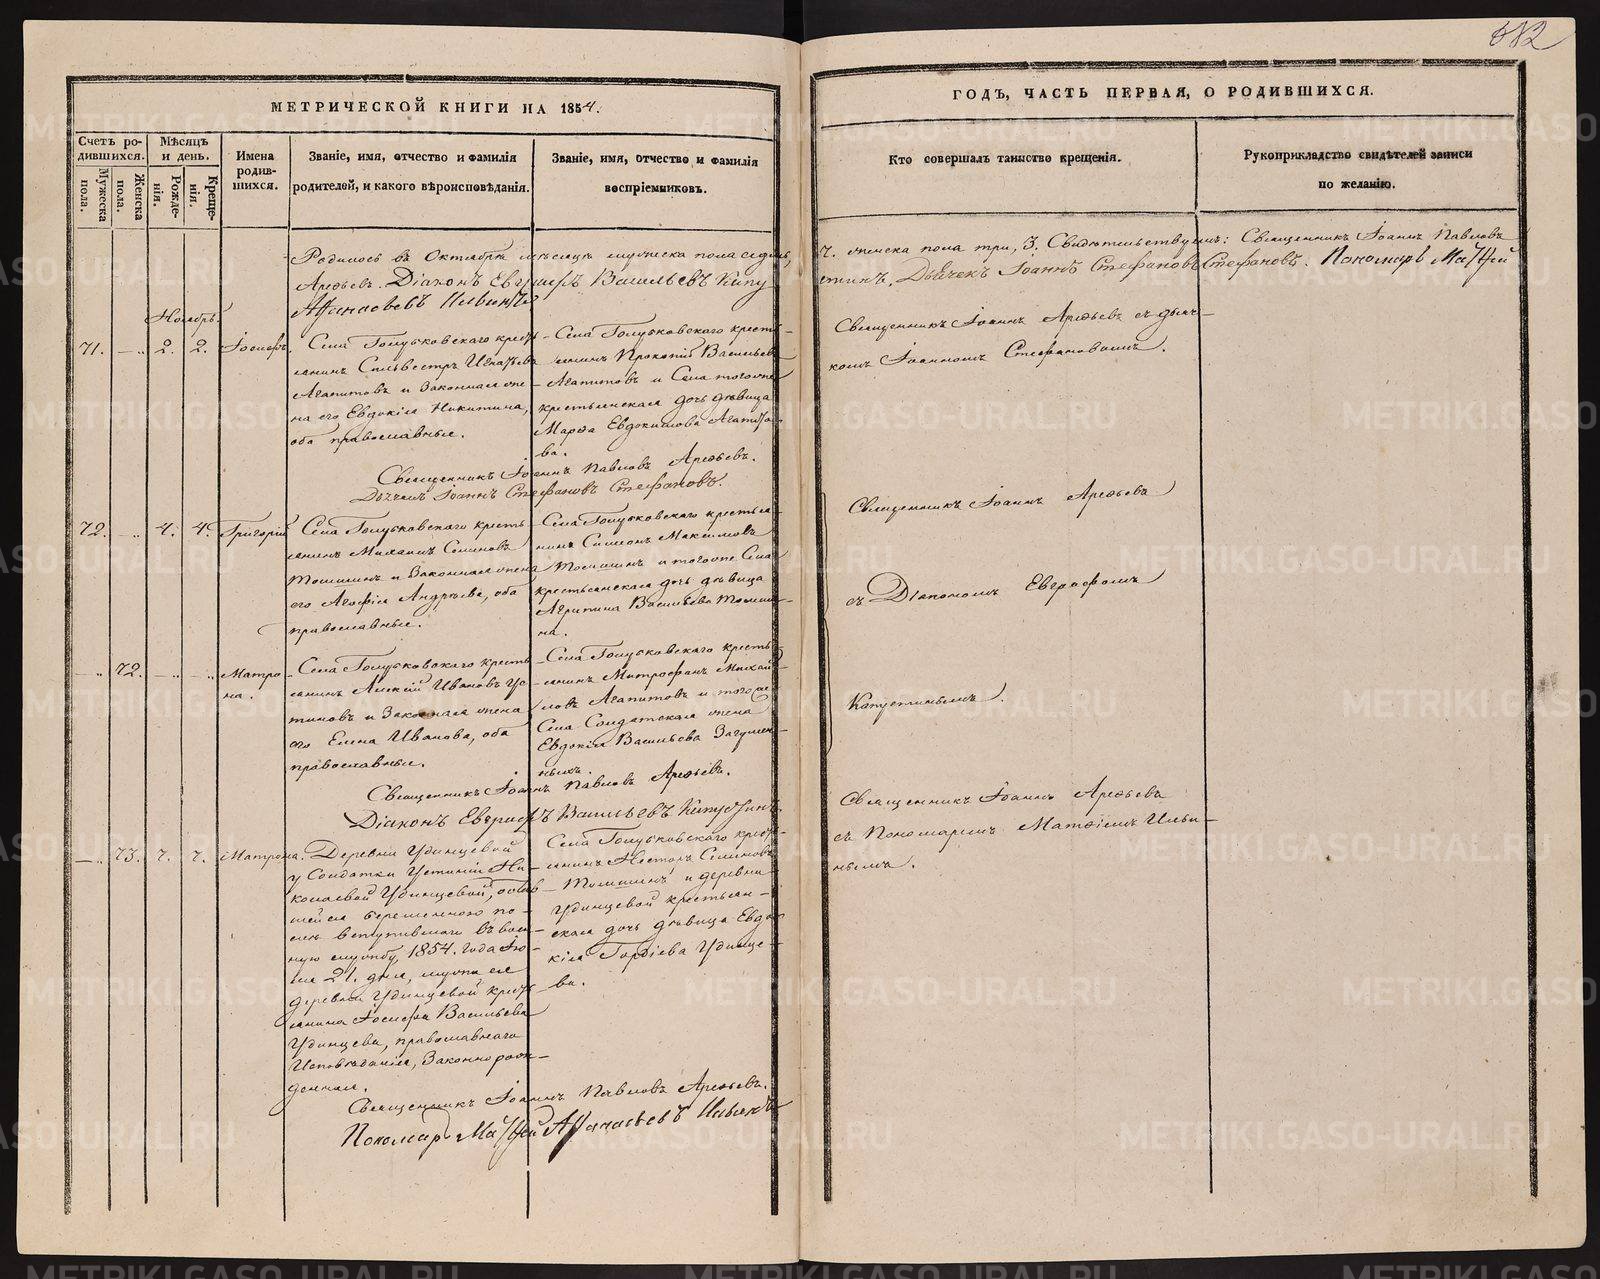 682
МЕТРИЧЕСКОЙ КНИГИ НА 1854.
ГОДЪ, ЧАСТЬ ПЕРВАЯ, О РОДИВШИХСЯ.
Счетъ ро-
дившихся.
Мужеска
пола.
Женска
пола.
Мѣсяцъ
и день.
Рожде-
нія.
Креще-
нія.
Имена
родив-
шихся.
Званіе, имя, отчество и фамилія
родителей, и какого вѣроисповѣданія.
Званіе, имя, отчество и фамилія
воспріемниковъ.
Кто совершалъ таинство крещенія.
Рукоприкладство свидѣтелей записи
по желанію.
Родилось въ Октябрѣ мѣсяцѣ мужеска пола седмь,
7. женска пола три, 3. Свидѣтельствуемъ: Священникъ Іоаннъ Павловъ
Арефьевъ. Діаконъ Евграфъ Васильевъ Капу
стинъ. Дьячекъ Іоаннъ Стефановъ Стефановъ. Пономарь Матѳей
Аѳанасьевъ Ильинъ
Ноябрь.
71. — „ 2. 2. Іосифъ.
Села Голубковскаго кресть
янинъ Сильвестръ Игнатьевъ
Агапитовъ и Законная же
на его Евдокія Никитина,
оба православные.
Села Голубковскаго кресть-
янинъ Прокопій Васильевъ
Агапитовъ и Села тогоже
крестьянская дочь дѣвица
Марѳа Евдокимова Агапито
ва.
Священникъ Іоаннъ Арефьевъ съ дьяч-
комъ Іоанномъ Стефановымъ.
Священникъ Іоаннъ Павловъ Арефьевъ.
Дьячекъ Іоаннъ Стефановъ Стефановъ.
72. — „ 4. 4. Григорій
Села Голубковскаго кресть
янинъ Михаилъ Семеновъ
Томшинъ и Законная жена
его Агафія Андреева, оба
православные.
Села Голубковскаго крестья
нинъ Симеонъ Максимовъ
Томшинъ и тогоже Села
крестьянская дочь дѣвица
Агрипина Васильева Томши
на.
Священникъ Іоаннъ Арефьевъ
съ Діакономъ Евграфомъ
Капустинымъ.
— „ 72. — „ — „ Матро
на.
Села Голубковскаго кресть
янинъ Алексій Ивановъ Ус
тиновъ и Законная жена
его Елена Иванова, оба
православные.
Села Голубковскаго кресть
янинъ Митрофанъ Михай
ловъ Агапитовъ и тогоже
Села Солдатская жена
Евдокія Васильева Загумен
ныхъ.
Священникъ Іоаннъ Павловъ Арефьевъ.
Діаконъ Евграфъ Васильевъ Капустинъ
— „ 73. 7. 7. Матрона.
Деревни Удинцевой
у Солдатки Устиніи Ни
колаевой Удинцевой, остав
шейся беременною по-
слѣ вступившаго въ воен
ную службу, 1854. года Ію
ля 21. дня, мужа ея
деревни Удинцевой кресть
янина Іосифа Васильева
Удинцева, православнаго
Исповѣданія, Законнорож-
денная.
Села Голубковскаго кресть-
янинъ Несторъ Семеновъ
Томшинъ и деревни
Удинцевой крестьян-
ская дочь дѣвица Евдо
кія Гордіева Удинце-
ва.
Священникъ Іоаннъ Арефьевъ
съ Пономаремъ Матѳіемъ Ильи-
нымъ.
Священникъ Іоаннъ Павловъ Арефьевъ.
Пономарь Матѳей Аѳанасьевъ Ильинъ
METRIKI.GASO-URAL.RU